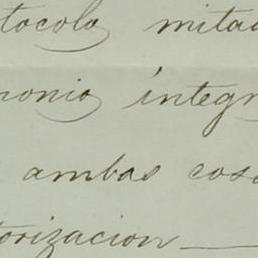 tocolo mitad
monio integr
ambas cosa
torizacion